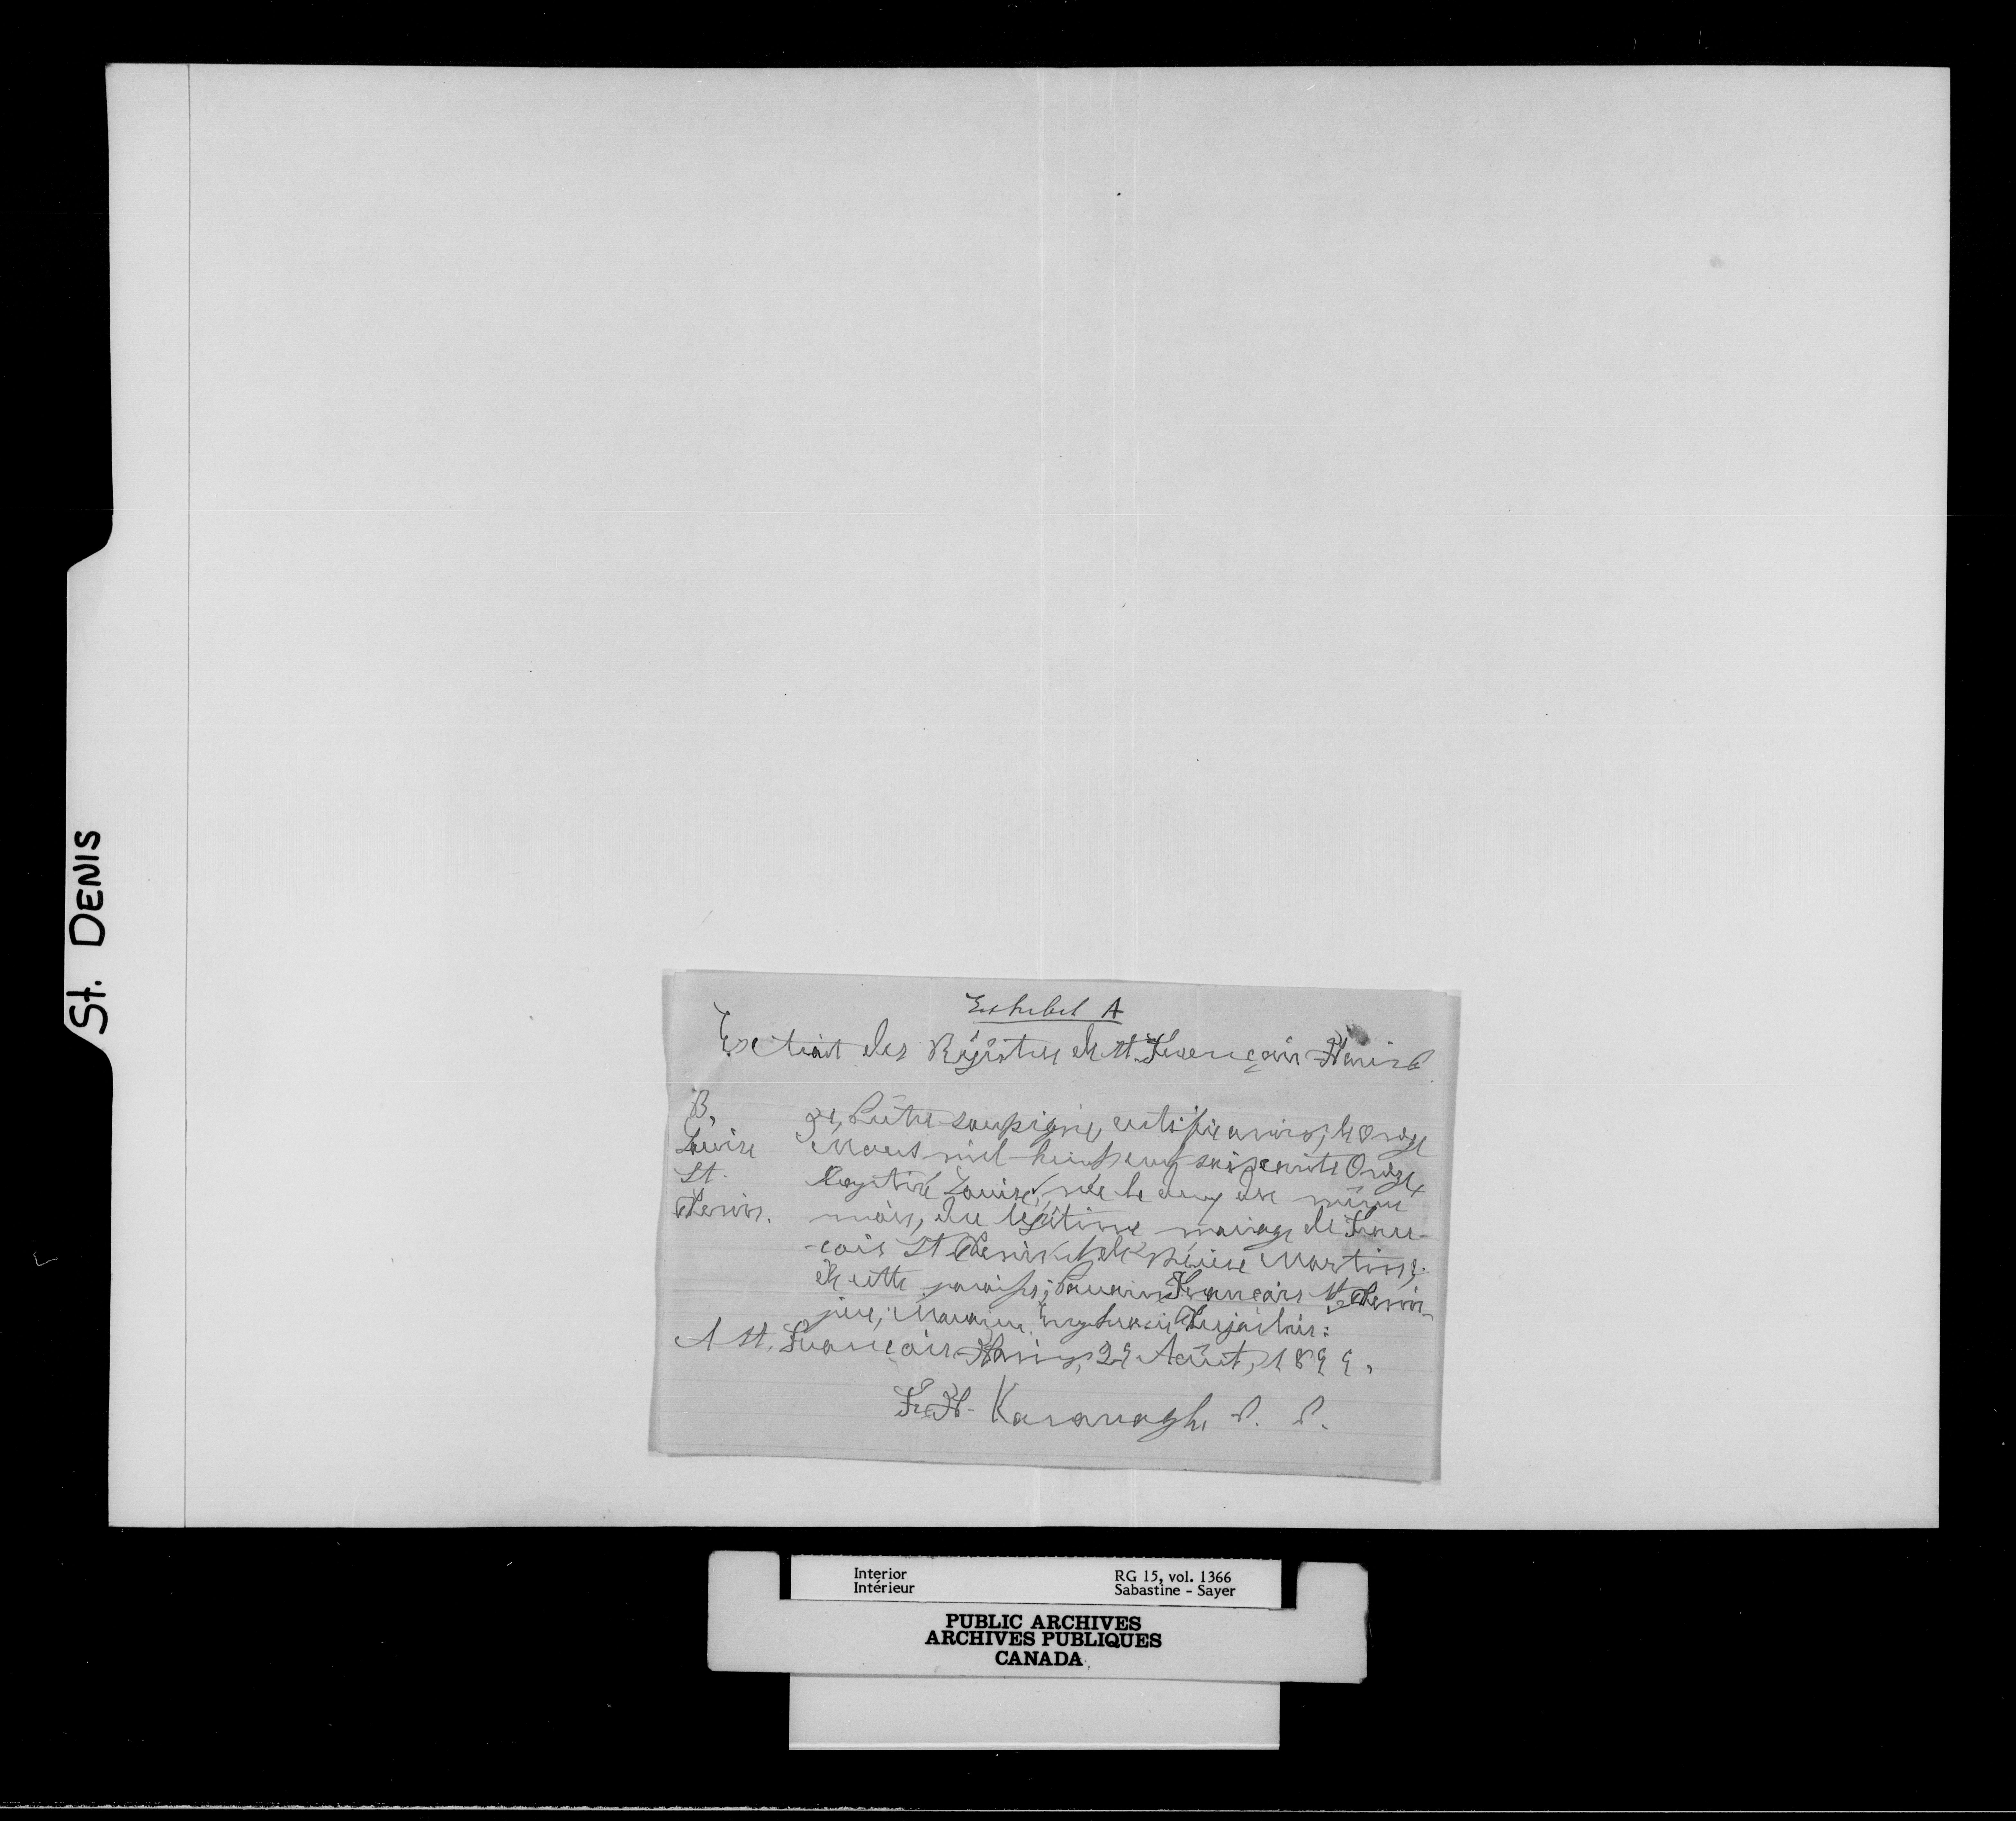 St. DENIS
Exhibit A
Extrait des Régistres de St. François-Xavier
B.
Louise
St.
Denis.
Je, Prêtre soussigné, certifie avoir, le onze
Mars mil-huit-cent soixante Onze,
Baptisé Louise, née le du même
mois, du légitime mariage de Fran-
-çois St Denis et de Martin,
de cette paroisse; Parrain François St Denis
père; Marraine Desjarlais:
A St. François-Xavier, 29 Août, 1899.
F. X. Kavanagh, P. P.
Interior
Intérieur
RG 15, vol. 1366
Sabastine - Sayer
PUBLIC ARCHIVES
ARCHIVES PUBLIQUES
CANADA